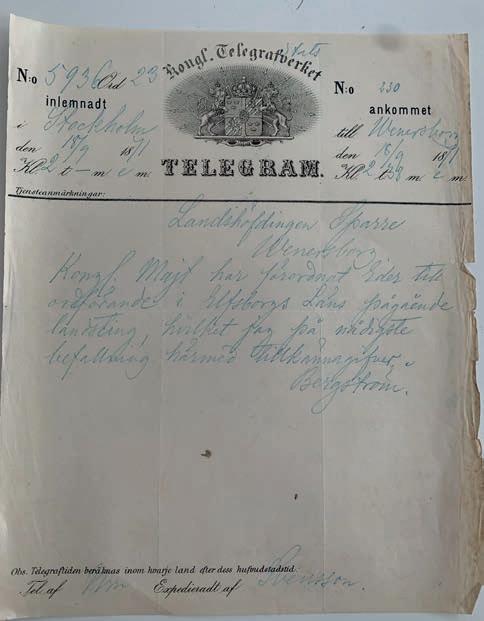 Stats
Kongl. Telegrafverket
N:o 5936 Ord 23
inlemnadt
i Stockholm
den 18/9 1891
Kl. 2 t – m e m.
TELEGRAM.
N:o 230
ankommet
till Wenersborg
den 18/9 1891
Kl. 2 t 38 m e m.
Tjensteanmärkningar:
Landshöfdingen Sparre
Wenersborg
Kongl. Majt har förordnat Eder till
ordförande i Elfsborgs Läns pågående
landsting, hvilket jag på nådigste
befallning härmed tillkännagifver.
Bergström.
Obs. Telegraftiden beräknas inom hvarje land efter dess hufvudstadstid.
Tel. af Expedieradt af Svensson.